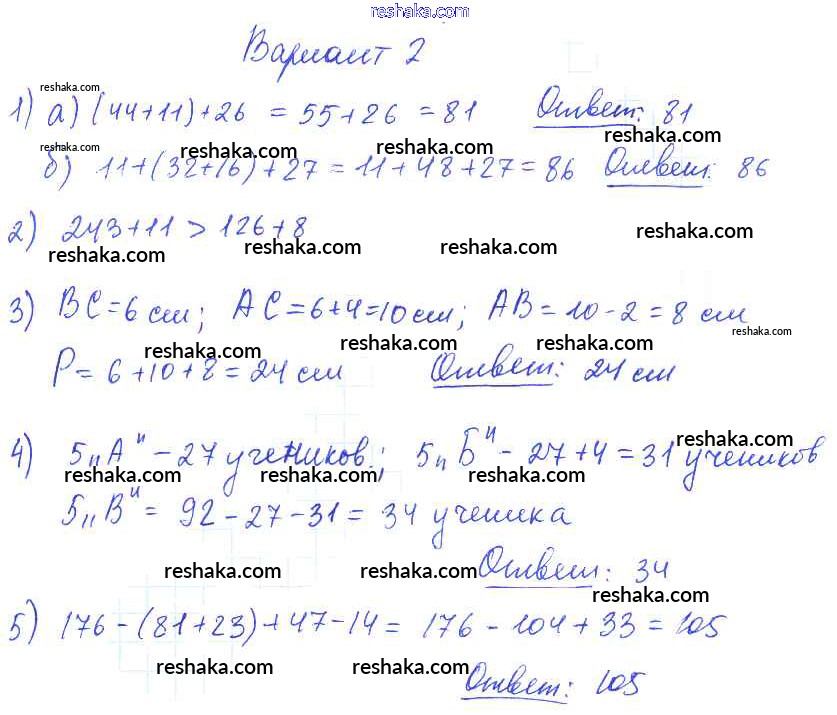 reshaka.com
Вариант 2
reshaka.com
1) а) (44+11)+26 = 55+26 = 81 Ответ: 81
reshaka.com reshaka.com reshaka.com reshaka.com
б) 11+(32+16)+27=11+48+27=86 Ответ: 86
2) 243+11 > 126+8 reshaka.com
reshaka.com reshaka.com reshaka.com
3) BC=6 см; AC=6+4=10см; AB=10-2=8 см
reshaka.com
reshaka.com reshaka.com reshaka.com
P=6+10+8=24см Ответ: 24см
reshaka.com
4) 5„А" - 27 учеников; 5„Б" - 27+4=31 учеников
reshaka.com reshaka.com reshaka.com
5„В" = 92-27-31= 34 ученика
reshaka.com reshaka.com Ответ: 34
reshaka.com
5) 176-(81+23)+47-14= 176-104+33=105
reshaka.com reshaka.com
Ответ: 105